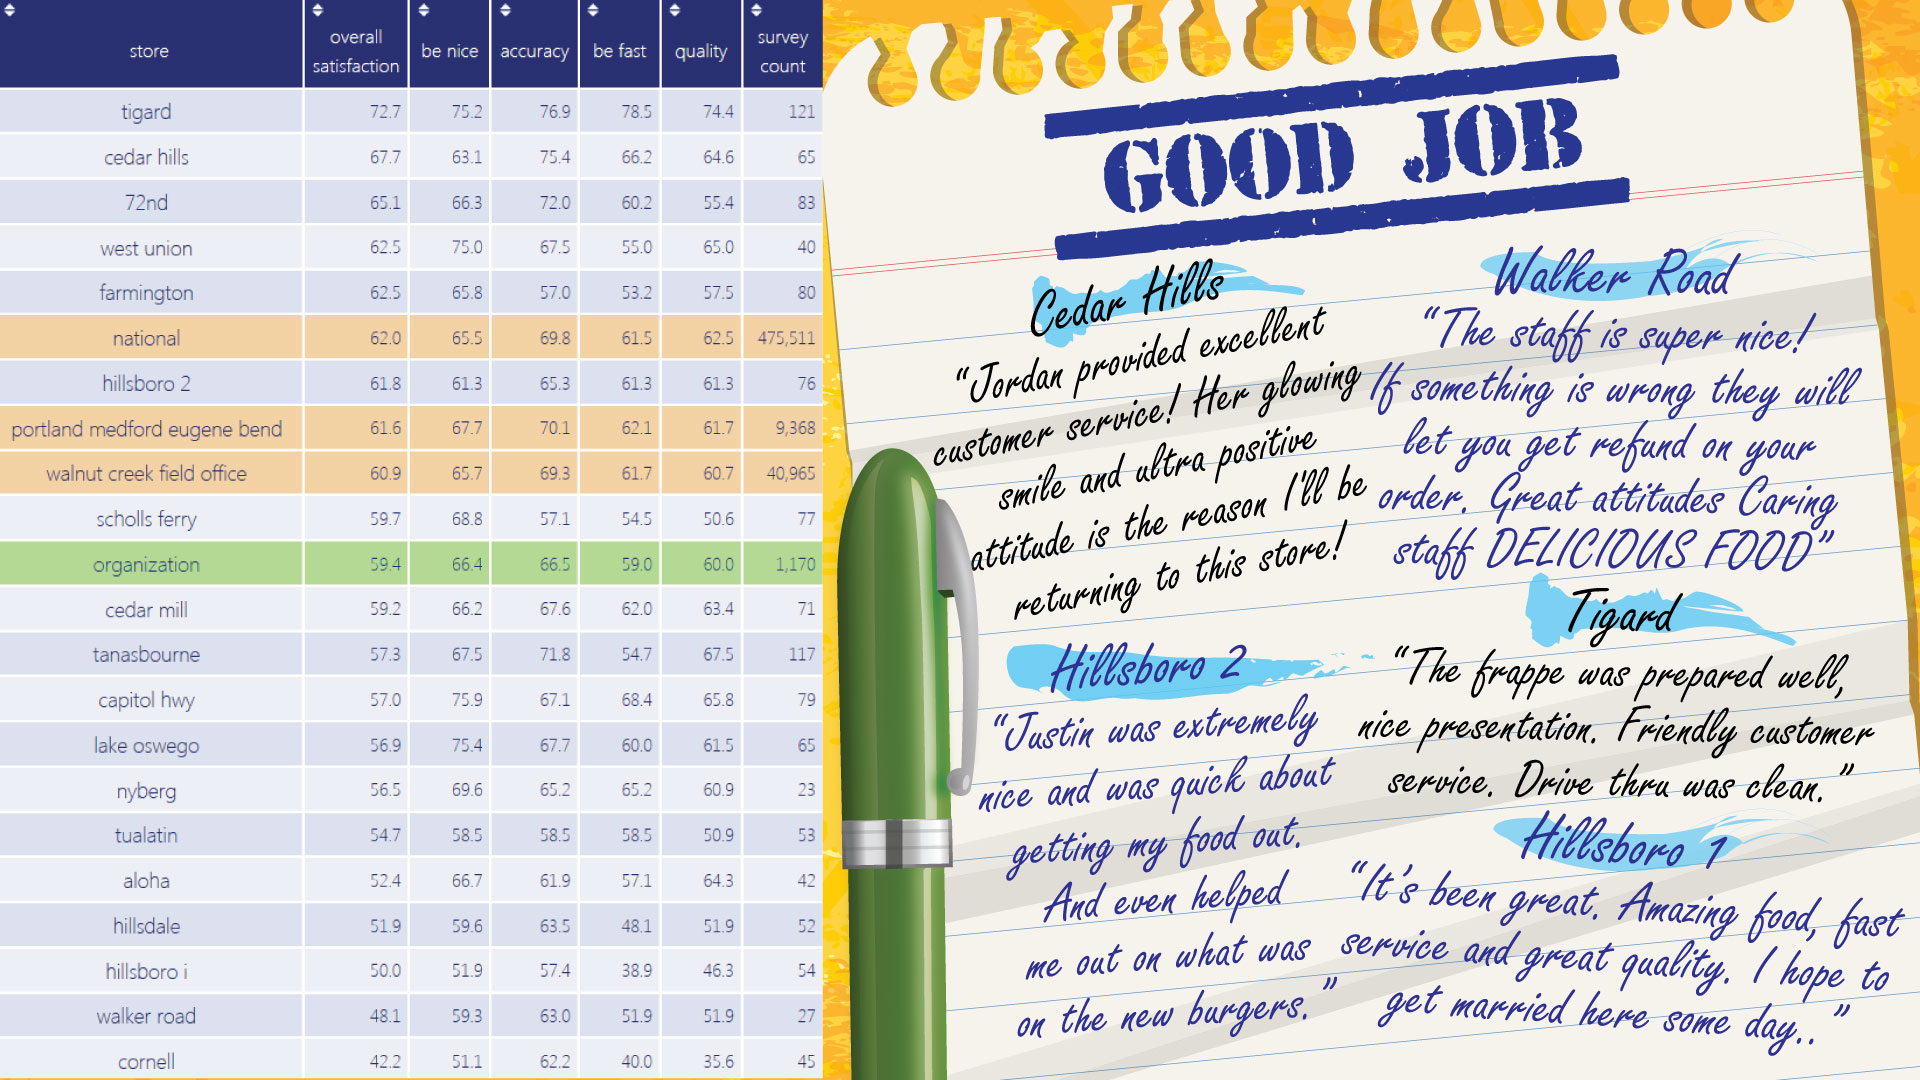 store overall satisfaction be nice accuracy be fast quality survey count
tigard 72.7 75.2 76.9 78.5 74.4 121
cedar hills 67.7 63.1 75.4 66.2 64.6 65
72nd 65.1 66.3 72.0 60.2 55.4 83
west union 62.5 75.0 67.5 55.0 65.0 40
farmington 62.5 65.8 57.0 53.2 57.5 80
national 62.0 65.5 69.8 61.5 62.5 475,511
hillsboro 2 61.8 61.3 65.3 61.3 61.3 76
portland medford eugene bend 61.6 67.7 70.1 62.1 61.7 9,368
walnut creek field office 60.9 65.7 69.3 61.7 60.7 40,965
scholls ferry 59.7 68.8 57.1 54.5 50.6 77
organization 59.4 66.4 66.5 59.0 60.0 1,170
cedar mill 59.2 66.2 67.6 62.0 63.4 71
tanasbourne 57.3 67.5 71.8 54.7 67.5 117
capitol hwy 57.0 75.9 67.1 68.4 65.8 79
lake oswego 56.9 75.4 67.7 60.0 61.5 65
nyberg 56.5 69.6 65.2 65.2 60.9 23
tualatin 54.7 58.5 58.5 58.5 50.9 53
aloha 52.4 66.7 61.9 57.1 64.3 42
hillsdale 51.9 59.6 63.5 48.1 51.9 52
hillsboro i 50.0 51.9 57.4 38.9 46.3 54
walker road 48.1 59.3 63.0 51.9 51.9 27
cornell 42.2 51.1 62.2 40.0 35.6 45
GOOD JOB
Cedar Hills
"Jordan provided excellent
customer service! Her glowing
smile and ultra positive
attitude is the reason I'll be
returning to this store!
Hillsboro 2
"Justin was extremely
nice and was quick about
getting my food out.
And even helped
me out on what was
on the new burgers."
Walker Road
"The staff is super nice!
If something is wrong they will
let you get refund on your
order. Great attitudes Caring
staff DELICIOUS FOOD"
Tigard
"The frappe was prepared well,
nice presentation. Friendly customer
service. Drive thru was clean."
Hillsboro 1
"It's been great. Amazing food, fast
service and great quality. I hope to
get married here some day.."